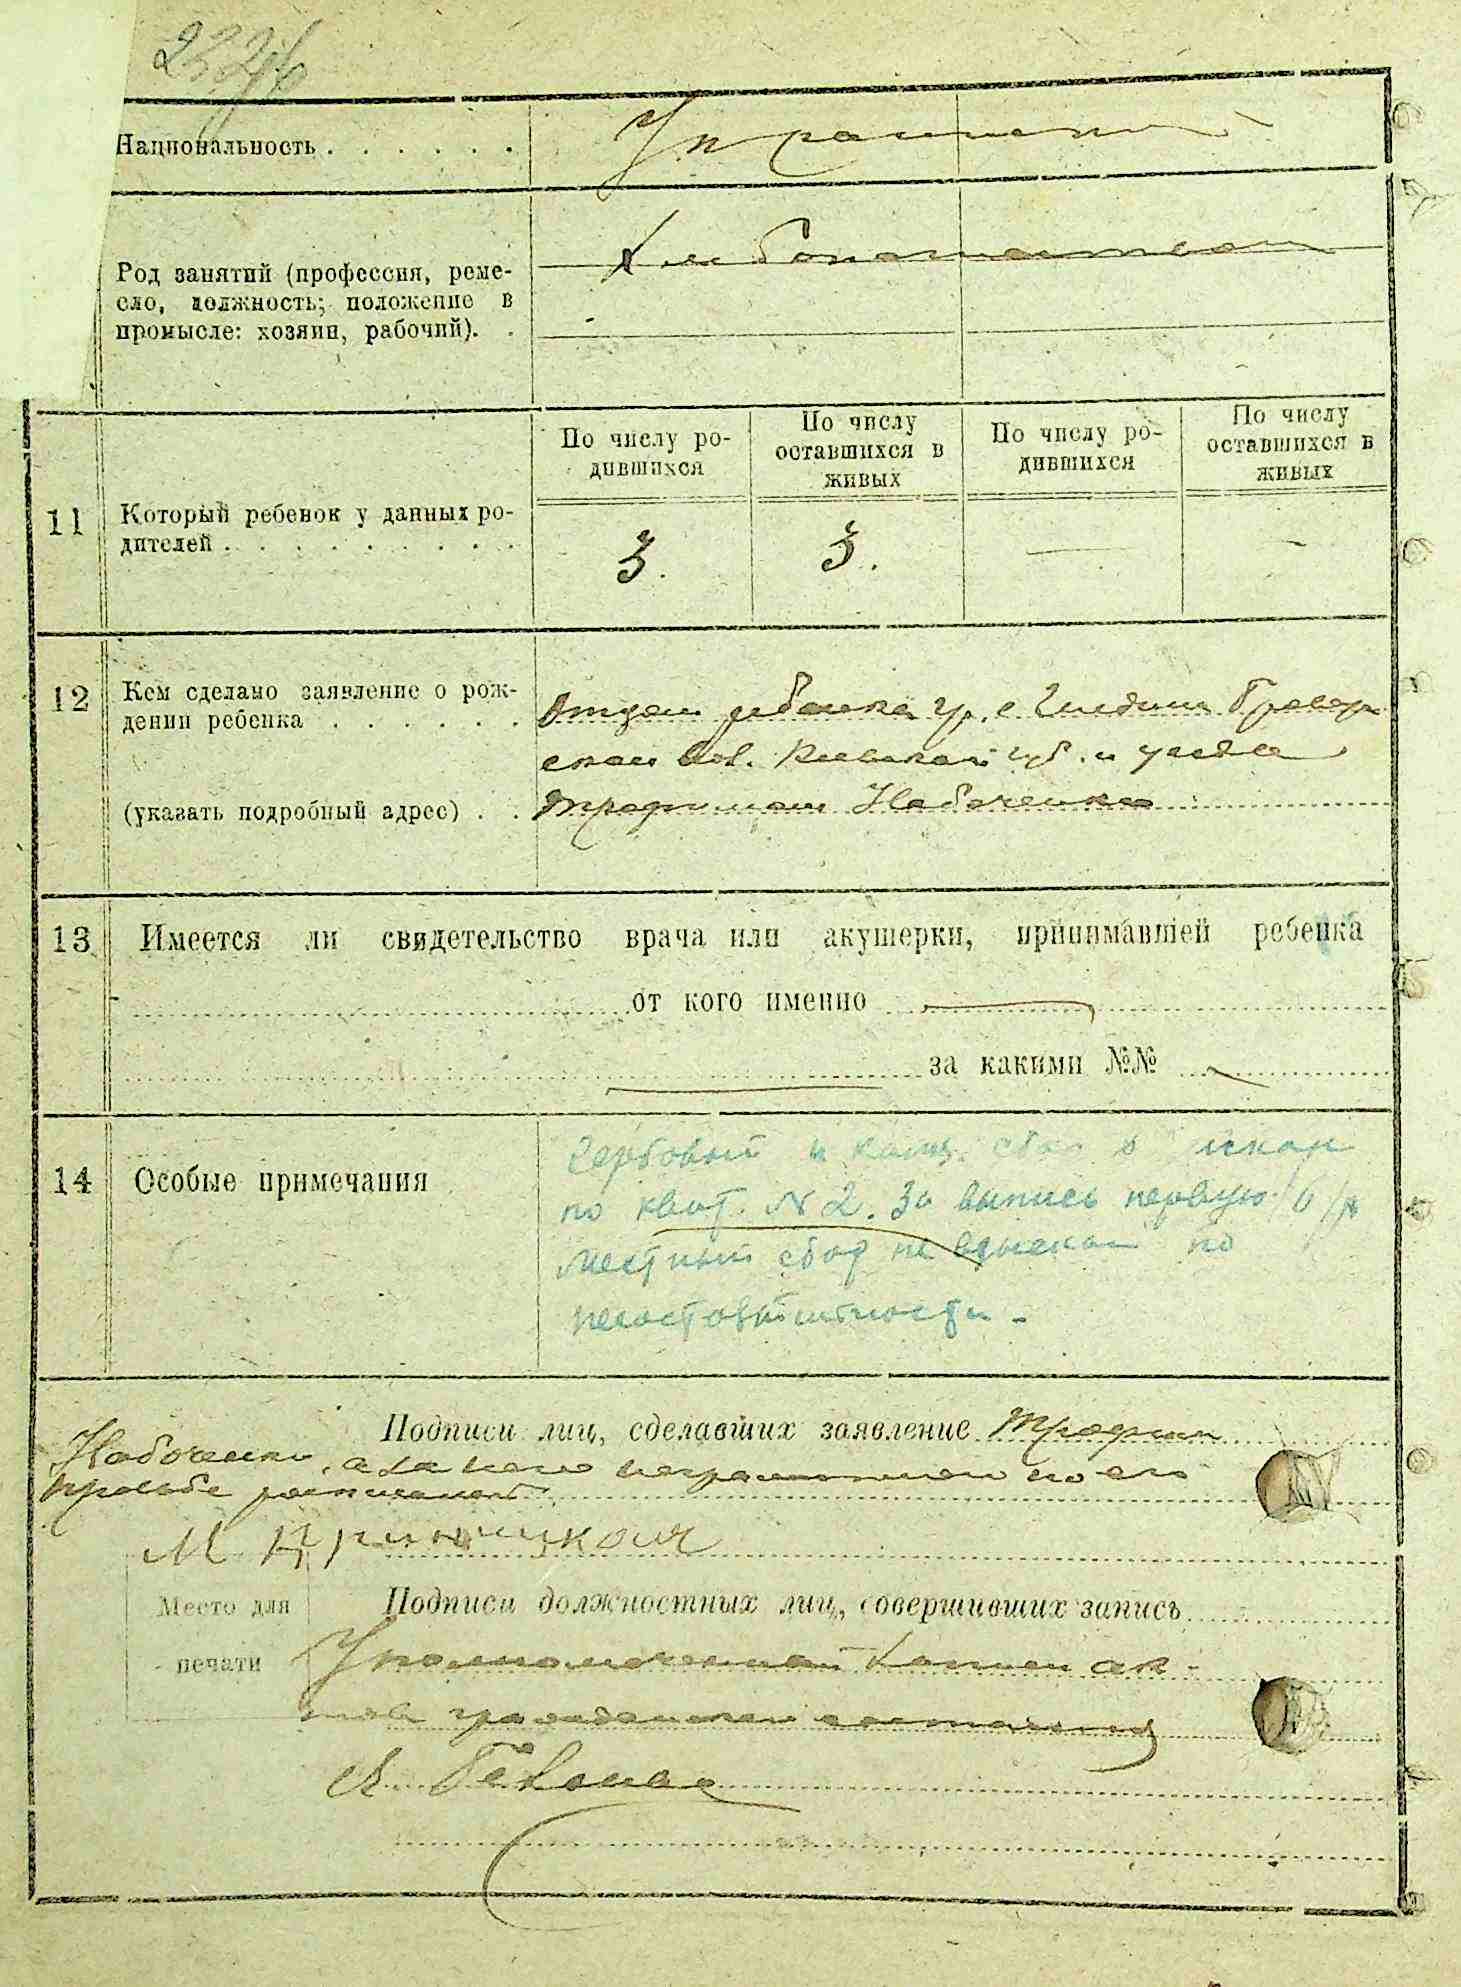 Национальность . . . . . .
Украинский
Род занятий (профессия, реме-
сло, должность; положение в
промысле: хозяин, рабочий). .
Хлебопашеством
По числу ро-
дившихся
По числу
оставшихся в
живых
По числу ро-
дившихся
По числу
оставшихся в
живых
11
Который ребенок у данных ро-
дителей . . . . . . . . .
3.
3.
—
—
12
Кем сделано заявление о рож-
дении ребенка . . . . . .
(указать подробный адрес) . .
Отцом ребенка гр. с. Бровар
ской вол. Киевской губ. и уезда
Трофимом
13
Имеется ли свидетельство врача или акушерки, принимавшей ребенка
от кого именно —
за какими №№
14
Особые примечания
Гербовый и канц. сбор
по квит. № 2. За выпись первую
местный сбор не взыскан по
Подписи лиц, сделавших заявление Трофим
а за него неграмотного по его
просьбе расписался
М
Место для
печати
Подписи должностных лиц, совершивших запись
Уполномоченный записи ак-
тов гражданского состояния